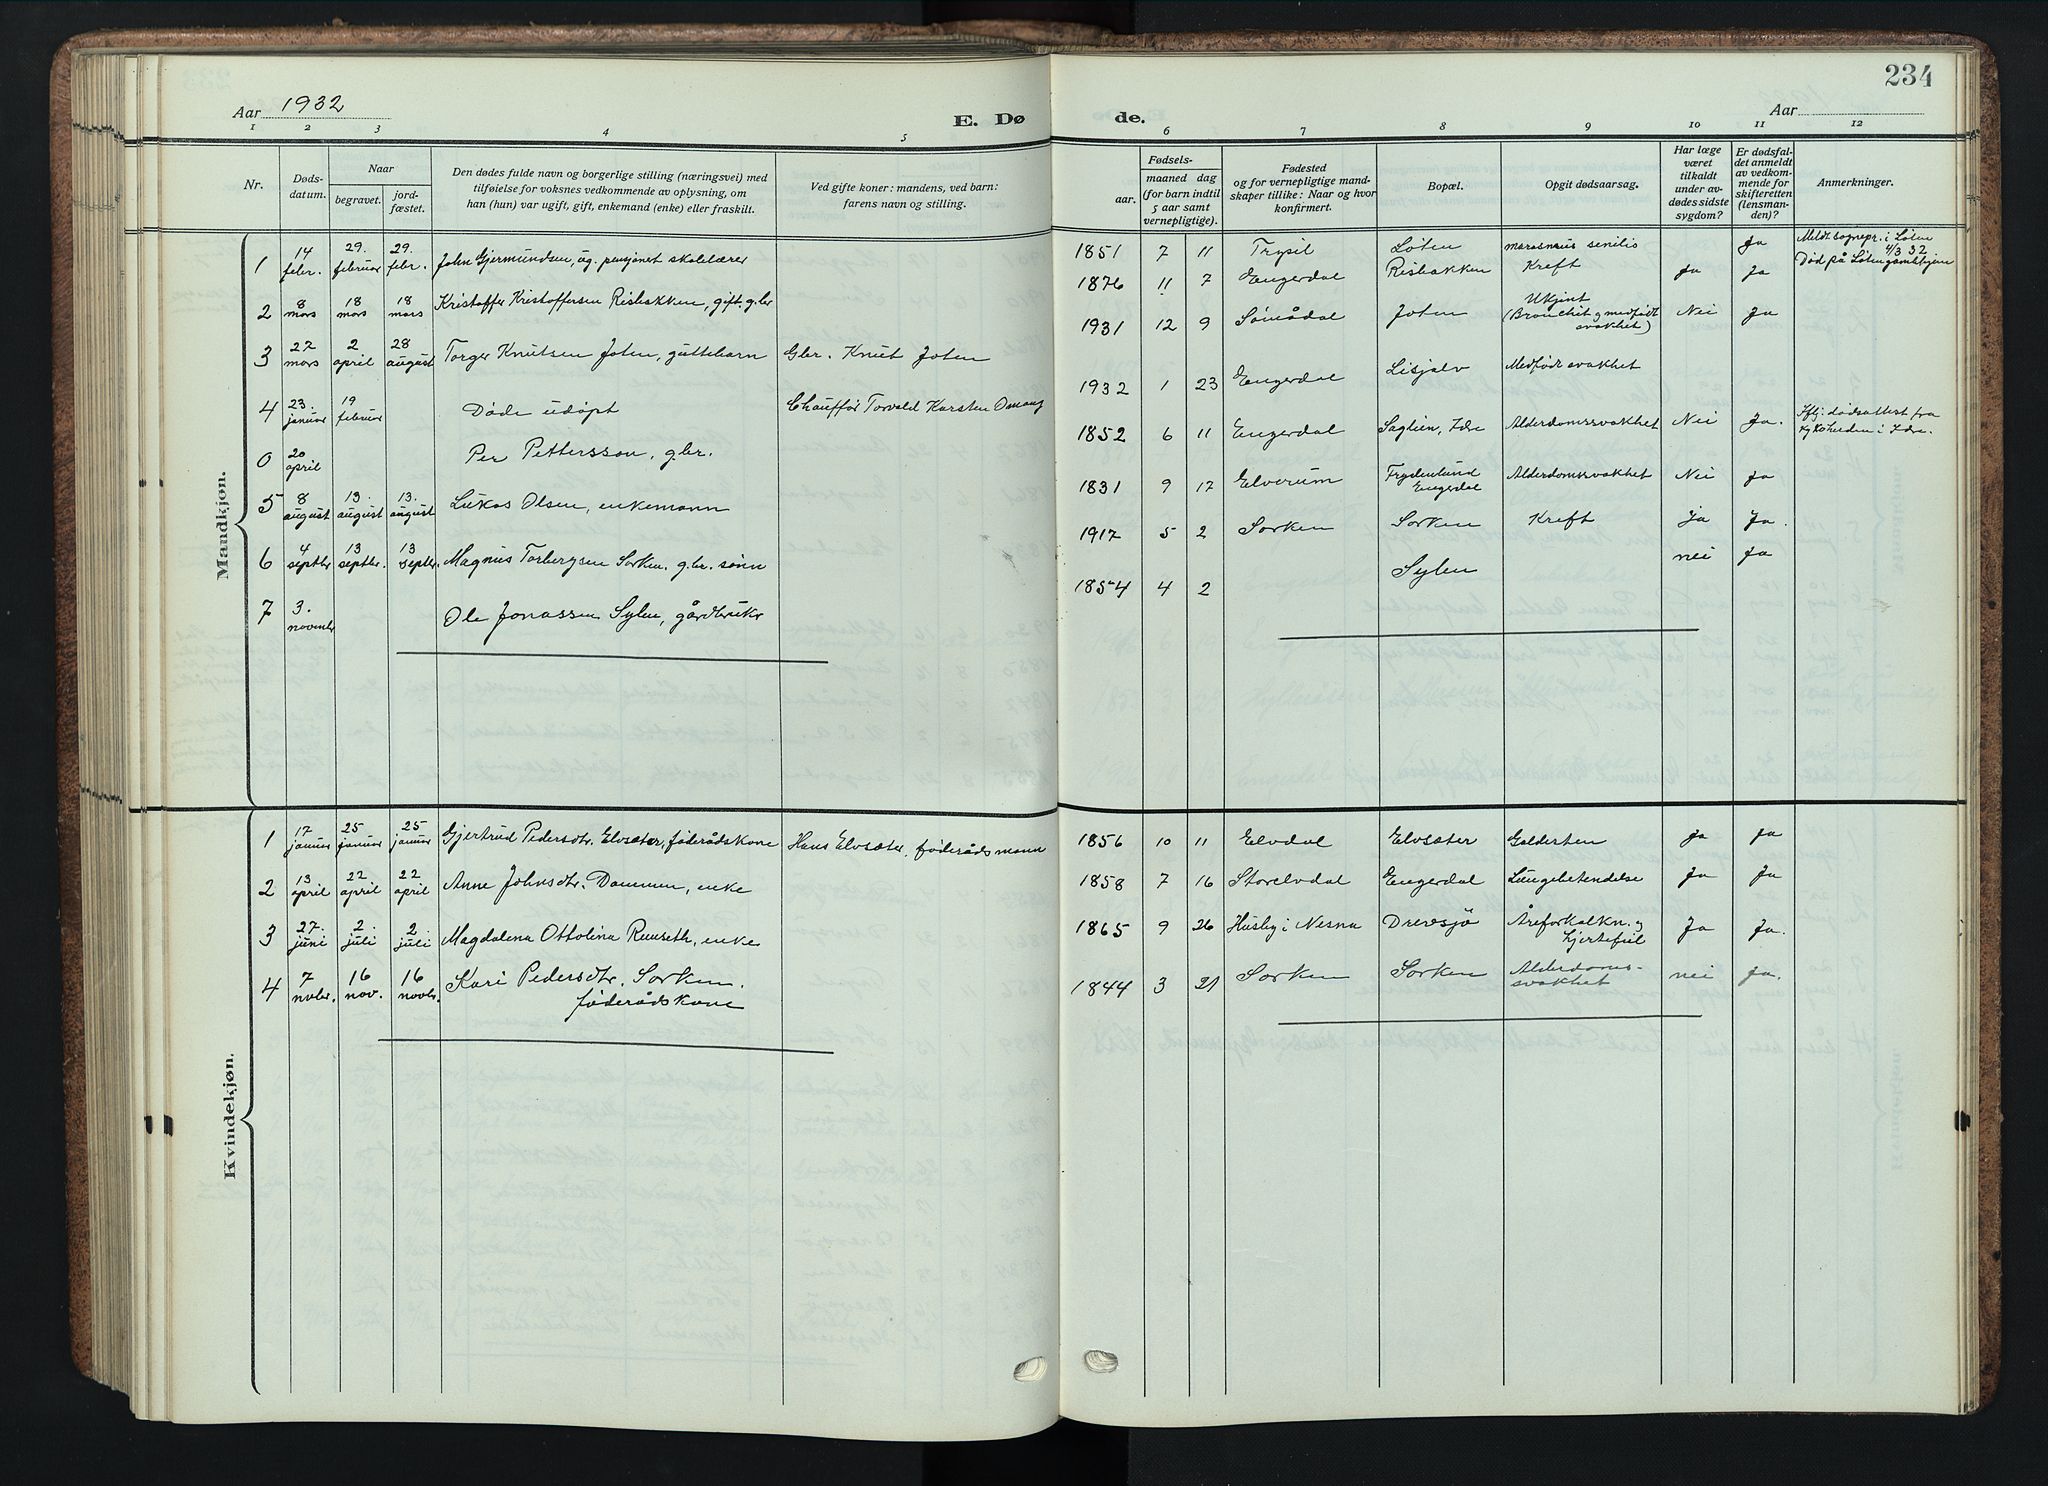 Aar 1932
E. Dø
de.
Aar
234
1 2 3 4 5 6 7 8 9 10 11 12
Nr.
Døds-
datum.
Naar
begravet.
jord-
fæstet.
Den dødes fulde navn og borgerlige stilling (næringsvei) med
tilføielse for voksnes vedkommende av oplysning, om
han (hun) var ugift, gift, enkemand (enke) eller fraskilt.
Ved gifte koner: mandens, ved barn:
farens navn og stilling.
Fødsels-
aar.
maaned dag
(for barn indtil
5 aar samt
vernepligtige).
Fødested
og for vernepligtige mand-
skaper tillike: Naar og hvor
konfirmert.
Bopæl.
Opgit dødsaarsag.
Har læge
været
tilkaldt
under av-
dødes sidste
sygdom?
Er dødsfal-
det anmeldt
av vedkom-
mende for
skifteretten
(lensman-
den)?
Anmerkninger.
Mandkjøn.
1 14 febr. 29. februar 29. febr. John Gjermundsen, ug. pensjonert skolelærer 1851 7 11 Trysil Løten marasmus senilis Ja Meldt sognepr. i Løten 4/3 32 Død på Løten gamlehjem
2 8 mars 18 mars 18 mars Kristoffer Kristoffersen Risbakken, gift, gbr 1876 11 7 Engerdal Risbakken Kreft Ja Ja
3 27 mars 2 april 28 august Torger Knutsen Joten, guttebarn Gbr. Knut Joten 1931 12 9 Sømådal Joten Ukjent (Bronchit og medfødt svakhet) Nei Ja
4 23. januar 19 februar Døde udøpt Chauffør Torvald Karsten Omang 1932 1 23 Engerdal Lisjølv Medfødt svakhet
0 20 april Per Pettersson, gbr. 1852 6 11 Engerdal Saglien, Idre Alderdomssvakhet Nei Ja. Iflg. dødsattest fra kykoherden i Idre.
5 8 august 13. august 13. august Lukas Olsen, enkemann 1831 9 17 Elverum Frydenlund Engerdal Alderdomssvakhet Nei Ja
6 4 septbr 13 septbr. 13 septbr. Magnus Torbergsen Sorken, gbr. sønn 1917 5 2 Sorken Sorken Kreft Ja Ja.
7 3. novembr Ole Jonassen Sylen, gårdbruker 1854 4 2 Sylen nei Ja
Kvindekjøn.
1 17 januar 25 januar 25 januar Gjertrud Pedersdtr. Elvsæter, føderådskone Hans Elvsæter, føderådsmann 1856 10 11 Elvdal Elvsæter Galdesten Ja Ja
2 13 april 22 april 22 april Anne Johnsdtr. Dammen, enke 1858 7 16 Storelvdal Engerdal Lungebetendelse Ja Ja
3 27. juni 2. juli 2. juli Magdalena Ottolina Ruuseth, enke 1865 9 26 Husby i Nesna Drevsjø Åreforkalkn. og hjertefeil Ja Ja.
4 7 novbr. 16 nov. 16 novbr. Kari Pedersdtr. Sorken, føderådskone 1844 3 21 Sorken Sorken Alderdoms-svakhet nei Ja.